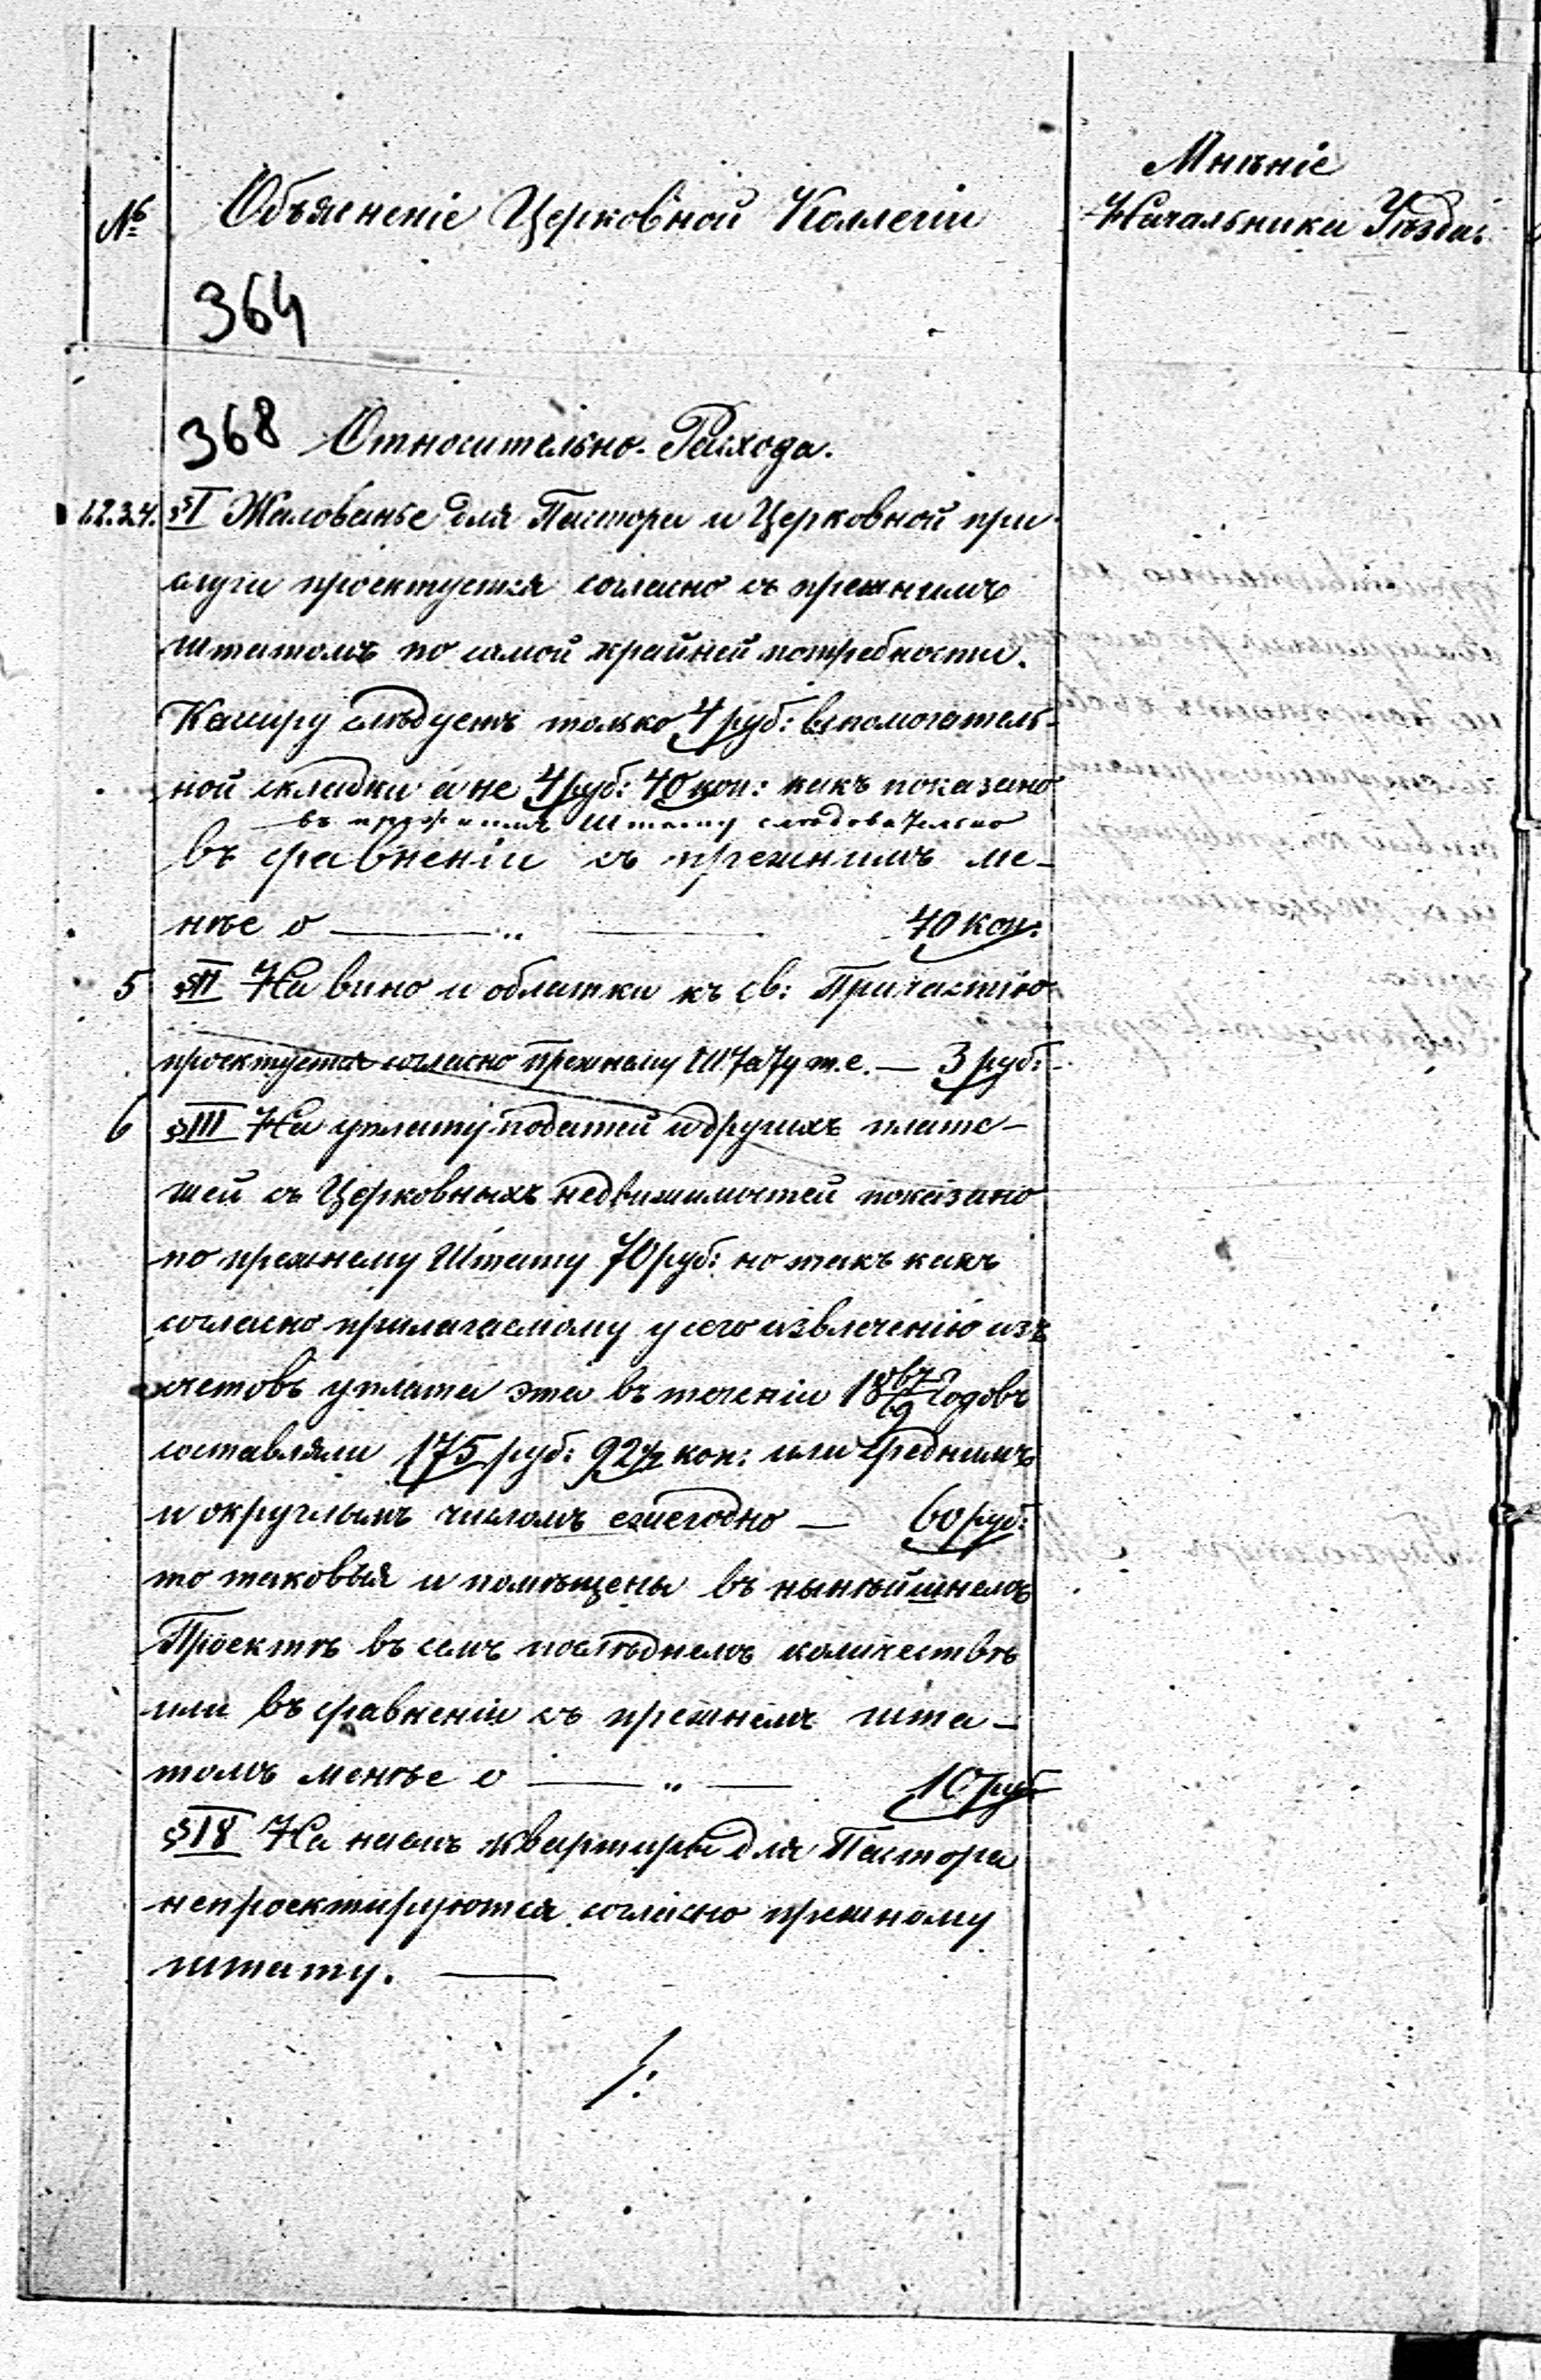 Мнѣніе
№ Объясненіе Церковной Коллегіи Начальника Уѣзда
364
368 Относительно Расхода.
1.2.3.4. §I Жалованье для Пастора и Церковной при-
слуги проектуется согласно съ прежнимъ
штатомъ по самой крайней потребности.
Касиру слѣдуетъ только 4 руб: вспомогатель-
ной складки а не 4 руб: 40 коп: какъ показано
въ прежнимъ Штату слѣдовательно
въ сравненіи съ прежнимъ ме-
нѣе о — „ — 40 коп:
5 §II На вино и облатки къ св: Причастію
проектуется согласно прежнему Штату т.е. — 3 руб:
6 §III На уплату податей и другихъ плате-
жей съ Церковныхъ недвижимостей показано
по прежнему Штату 70 руб: но такъ какъ
согласно прилагаемому у сего извлеченію изъ
счетовъ уплата эта въ теченіи 1867/69 годовъ
составляли 175 руб: 92½ коп: или среднимъ
и округлымъ числомъ ежегодно — 60 руб:
то таковыя и помѣщены въ нынѣйшнемъ
Проектѣ въ семъ послѣднемъ количествѣ
или въ сравненіи съ прежнемъ шта-
томъ менѣе о — „ — 10 руб
§IV На наемъ квартиры для Пастора
непроектируются согласно прежному
штату. —
/: